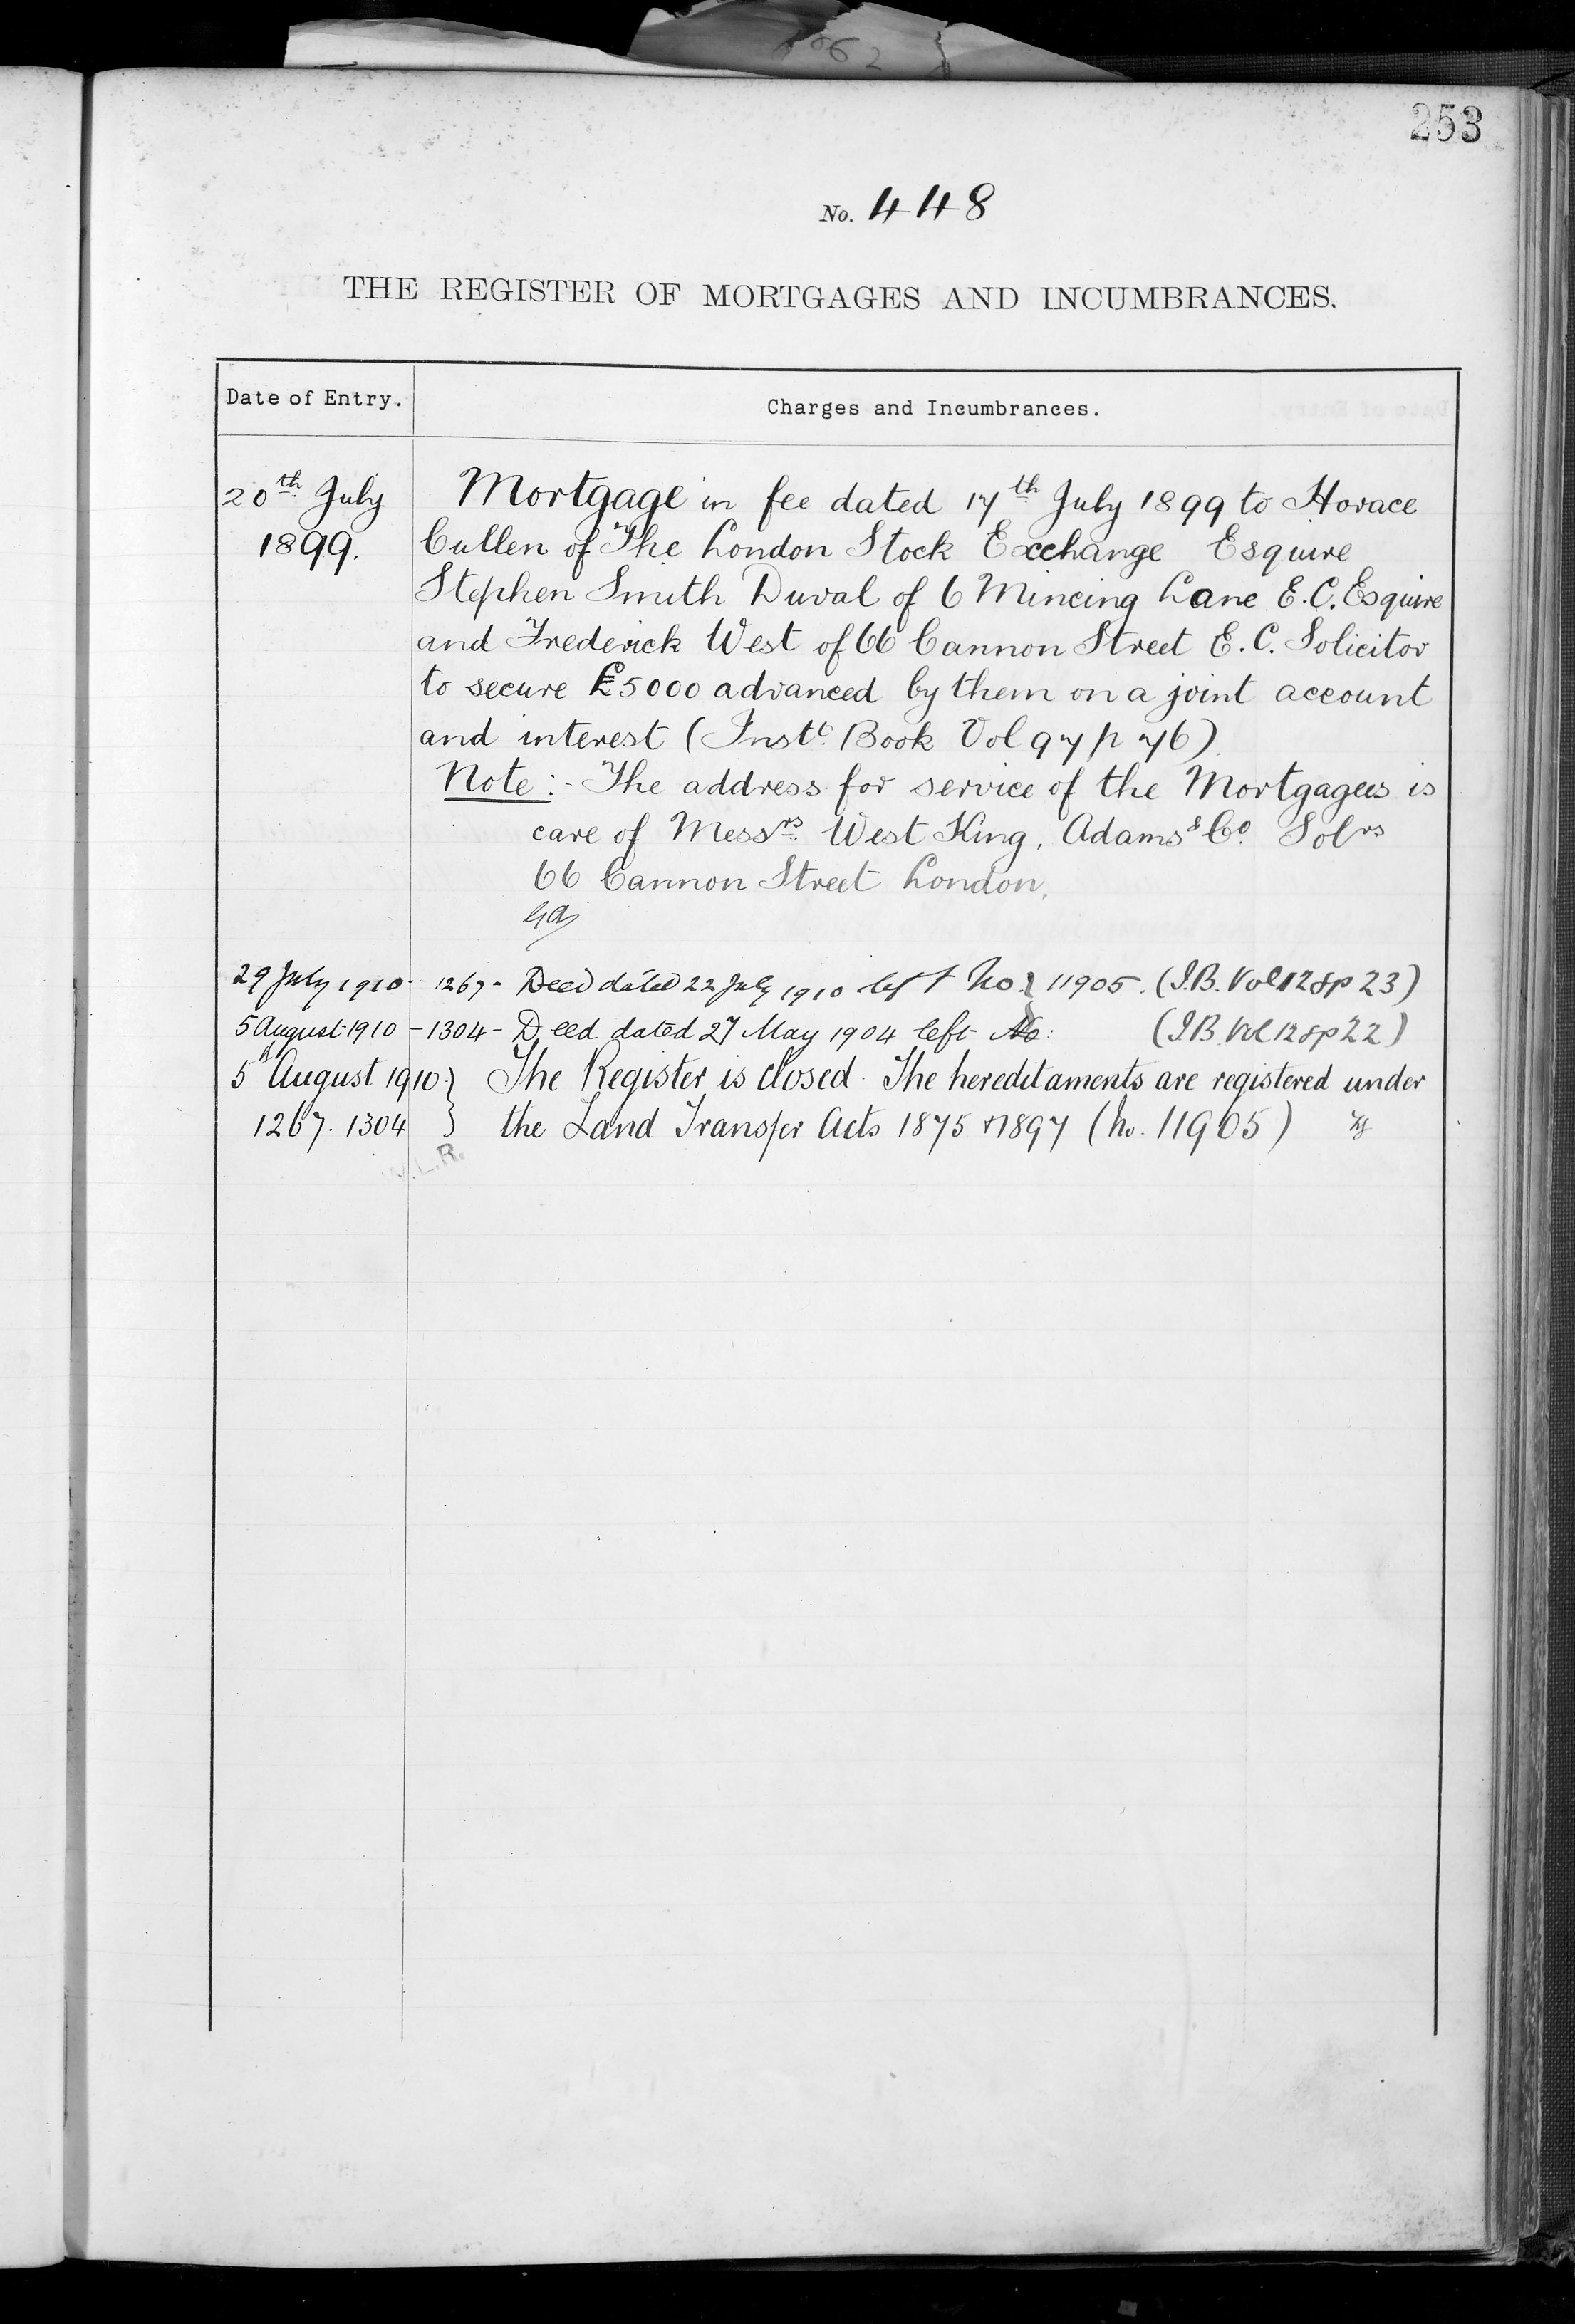 253
No. 448
THE REGISTER OF MORTGAGES AND INCUMBRANCES.
Date of Entry. Charges and Incumbrances.
20th July Mortgage in fee dated 17th July 1899 to Horace
1899. Cullen of The London Stock Exchange Esquire
Stephen Smith Duval of 6 Mincing Lane E.C. Esquire
and Frederick West of 66 Cannon Street E.C. Solicitor
to secure £5000 advanced by them on a joint account
and interest (Instt. Book Vol 97 p 76)
Note:- The address for service of the Mortgagees is
care of Messrs. West King, Adams & Co. Solrs
66 Cannon Street London.
29 July 1910 - 1267 - Deed dated 22 July 1910 left No. } 11905. (I.B. Vol 128 p 23)
5 August 1910 - 1304 - Deed dated 27 May 1904 left No: (I.B. Vol 128 p 22)
5 August 1910 } The Register is closed. The hereditaments are registered under
1267. 1304 } the Land Transfer Acts 1875 & 1897 (No. 11905)
L.R.